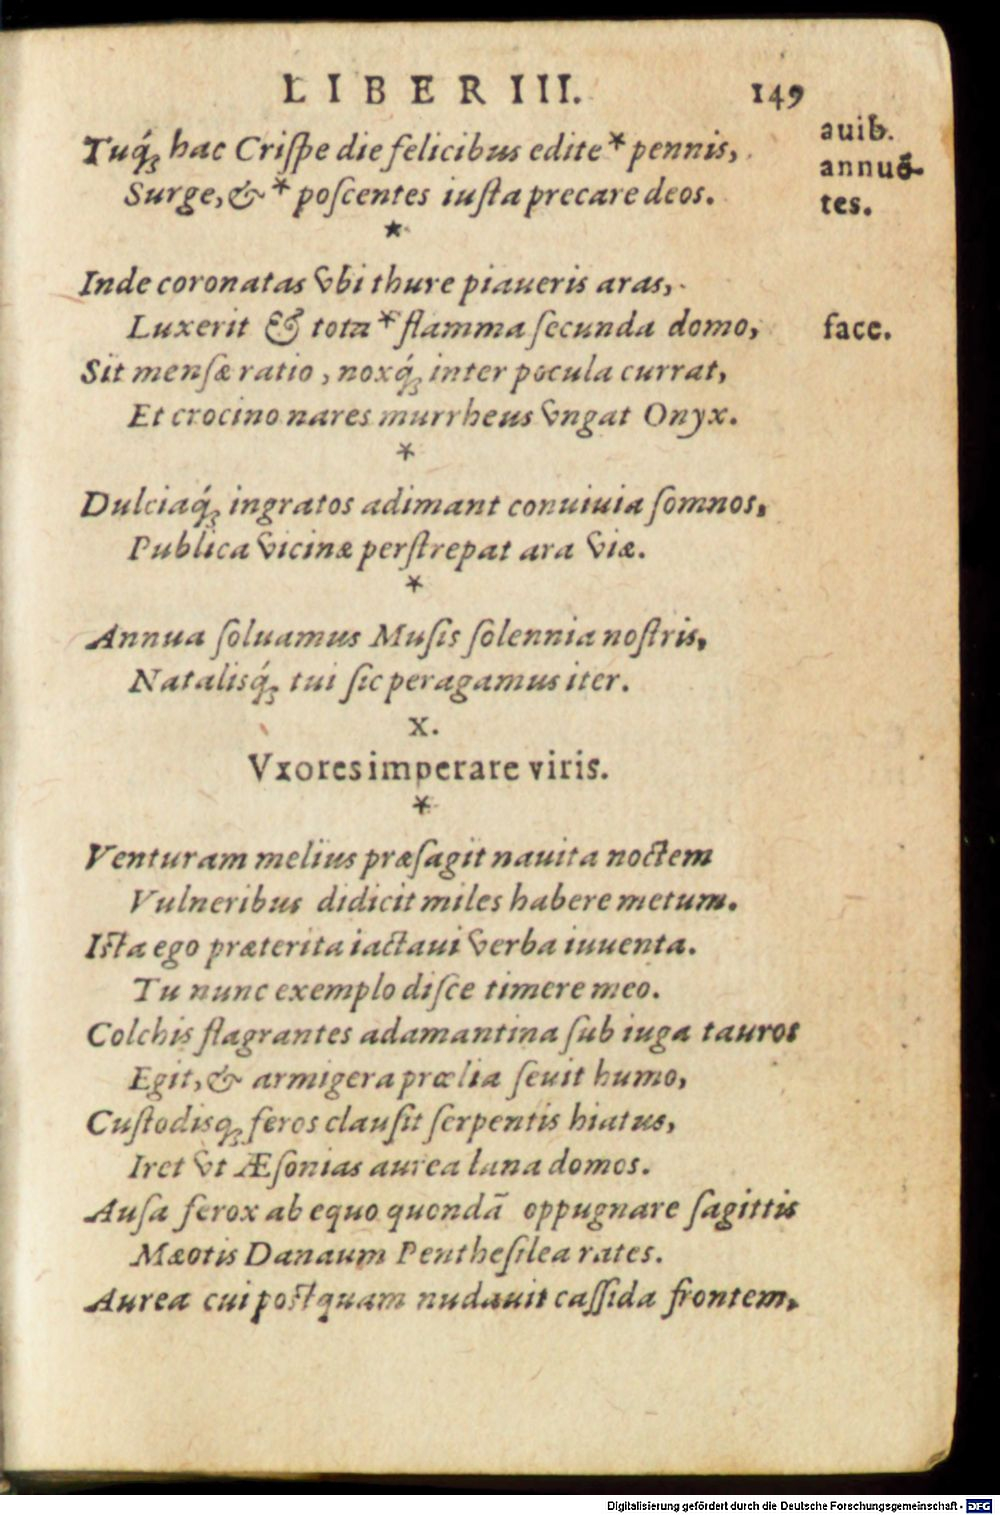 LIBER III. 149
Tuq́ꝫ hac Criſpe die felicibus edite * pennis,
auib.
Surge, & * poſcentes iuſta precare deos.
annuē-
tes.
*
Inde coronatas vbi thure piaueris aras,
Luxerit & tota * flamma ſecunda domo,
face.
Sit menſæ ratio, noxq́ꝫ inter pocula currat,
Et crocino nares murrheus vngat Onyx.
*
Dulciaq́ꝫ ingratos adimant conuiuia ſomnos,
Publica vicinæ perſtrepat ara viæ.
*
Annua ſoluamus Muſis ſolennia noſtris,
Natalisq́ꝫ tui ſic peragamus iter.
X.
Vxores imperare viris.
*
Venturam melius præſagit nauita noctem
Vulneribus didicit miles habere metum.
Iſta ego præterita iactaui verba iuuenta.
Tu nunc exemplo diſce timere meo.
Colchis flagrantes adamantina ſub iuga tauros
Egit, & armigera prœlia ſeuit humo,
Cuſtodisqꝫ feros clauſit ſerpentis hiatus,
Iret vt Æſonias aurea lana domos.
Auſa ferox ab equo quondã oppugnare ſagittis
Mæotis Danaum Pentheſilea rates.
Aurea cui poſtquam nudauit caſſida frontem,
Digitalisierung gefördert durch die Deutsche Forschungsgemeinschaft - DFG